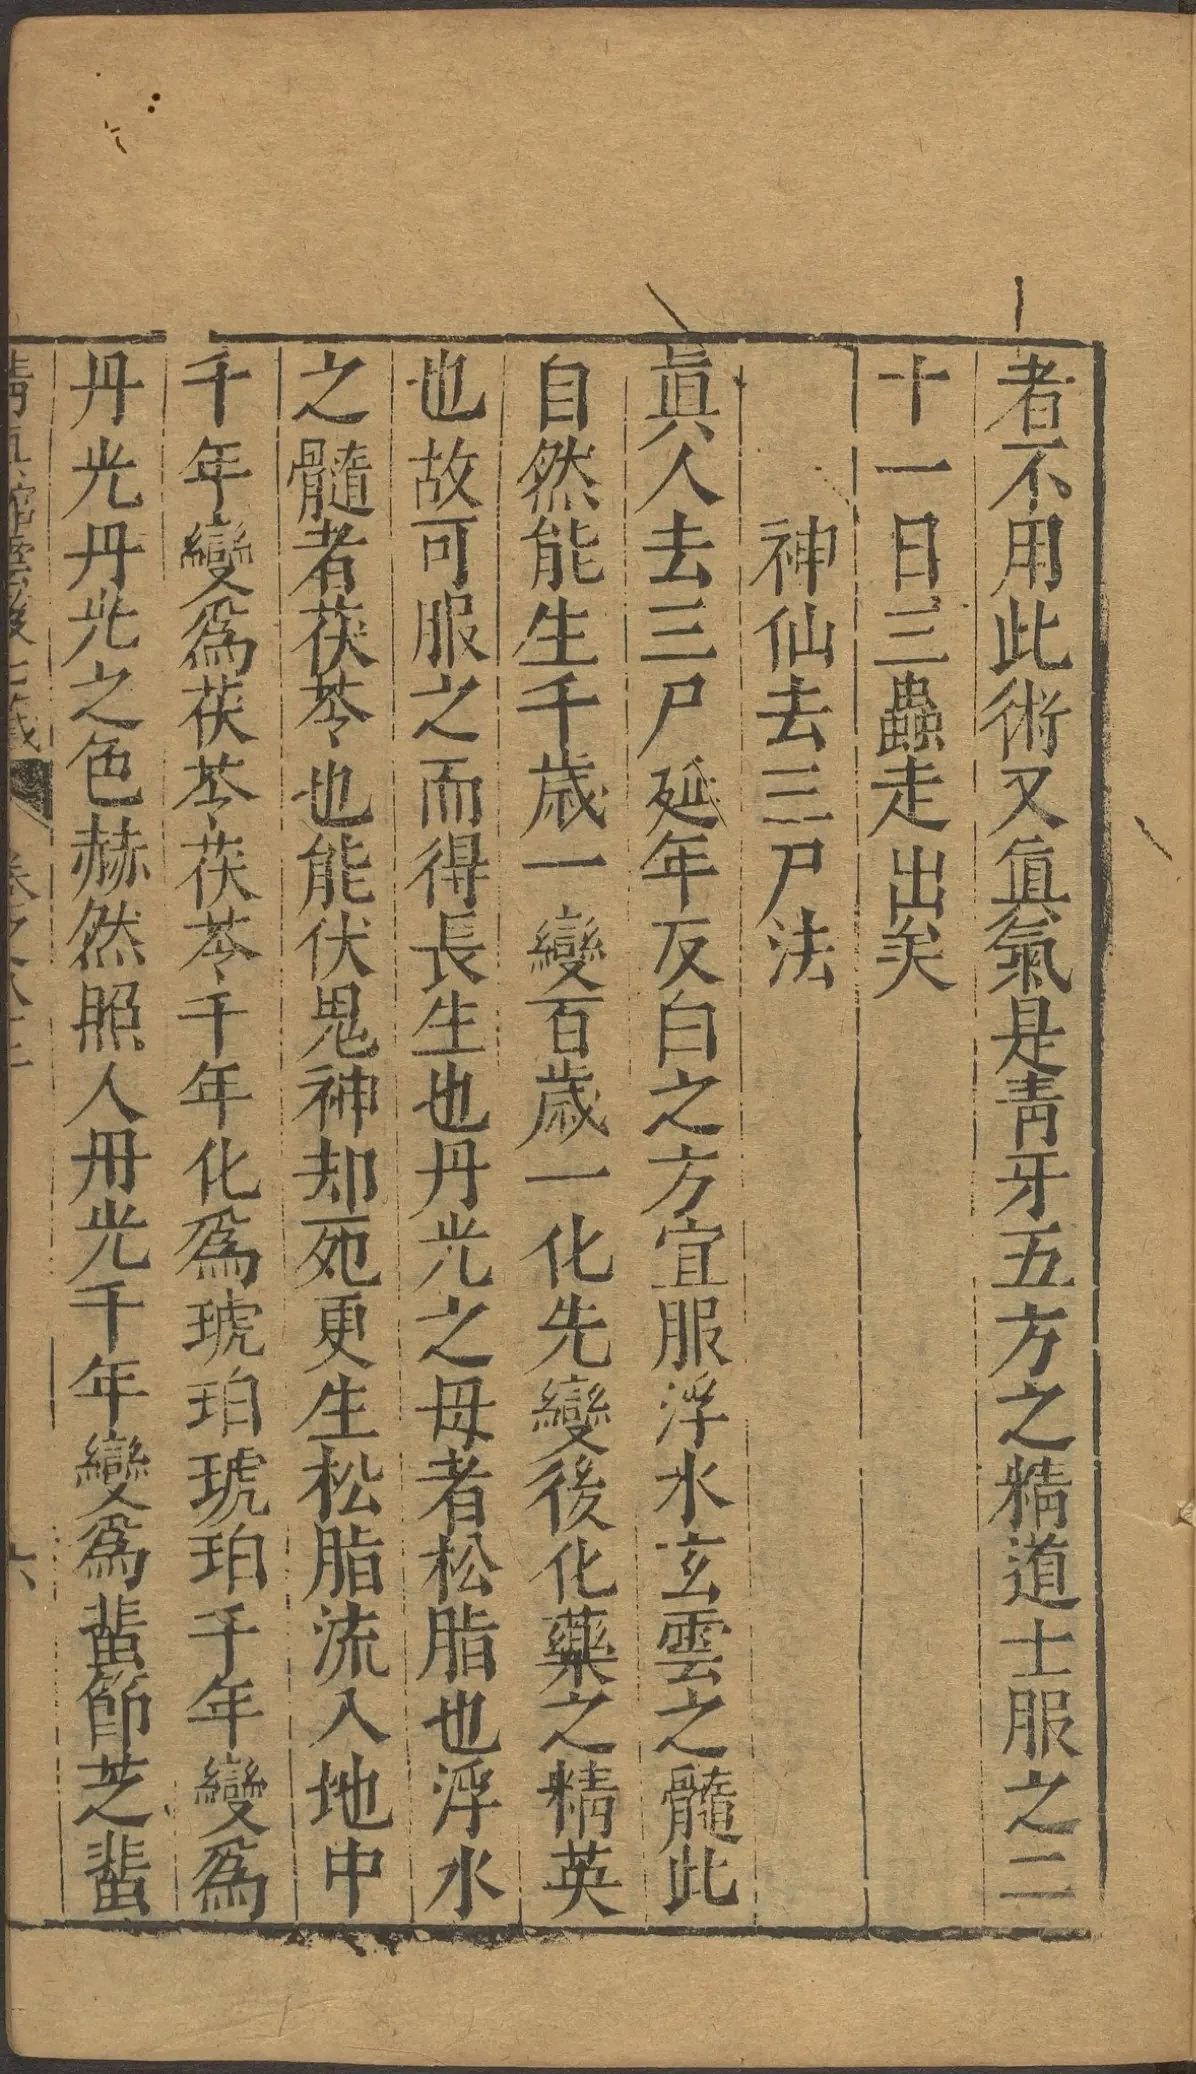 者不用此術又眞氣是青牙五方之精道士服之二
十一日三蟲走出矣
神仙去三尸法
眞人去三尸延年反白之方宜服浮水玄雲之髓此
自然能生千歲一變百歲一化先變後化藥之精英
也故可服之而得長生也丹光之母者松脂也浮水
之髓者茯苓也能伏鬼神却死更生松脂流入地中
千年變爲茯苓茯苓千年化爲琥珀琥珀千年變爲
丹光丹光之色赫然照人丹光千年變爲蜚節芝蜚
六